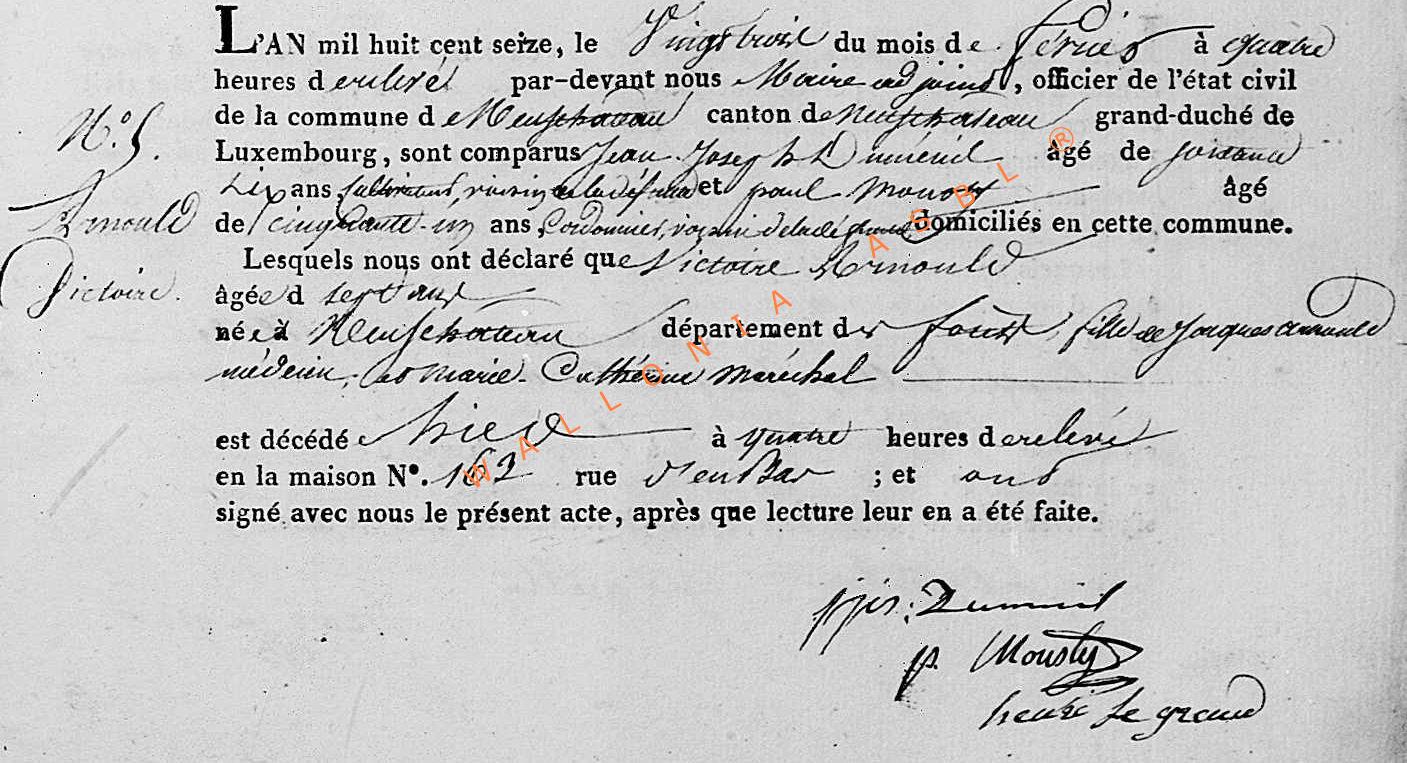 L'AN mil huit cent seize, le Vingt trois du mois de février à quatre
heures de relevé par-devant nous Maire adjoint, officier de l'état civil
de la commune de Neufchateau canton de Neufchateau grand-duché de
N.° 5.
Luxembourg, sont comparus Jean Joseph Dumenil âgé de soixante
dix ans cultivateur, voisin de la défunte et paul Mousty âgé
Arnould
de cinquante-un ans, Cordonnier, voisin de la défunte domiciliés en cette commune.
Lesquels nous ont déclaré que Victoire Arnould
Victoire.
âgée d sept ans
née à Neufchateau département des forêts, fille de Jacques arnould
médecin, et marie-Catherine maréchal
est décédée hier à quatre heures de relevé
en la maison N°. 162 rue d'en Bas ; et ont
signé avec nous le présent acte, après que lecture leur en a été faite.
Dumenil
p. Mousty
henri le grand
WALLONIA ASBL ®